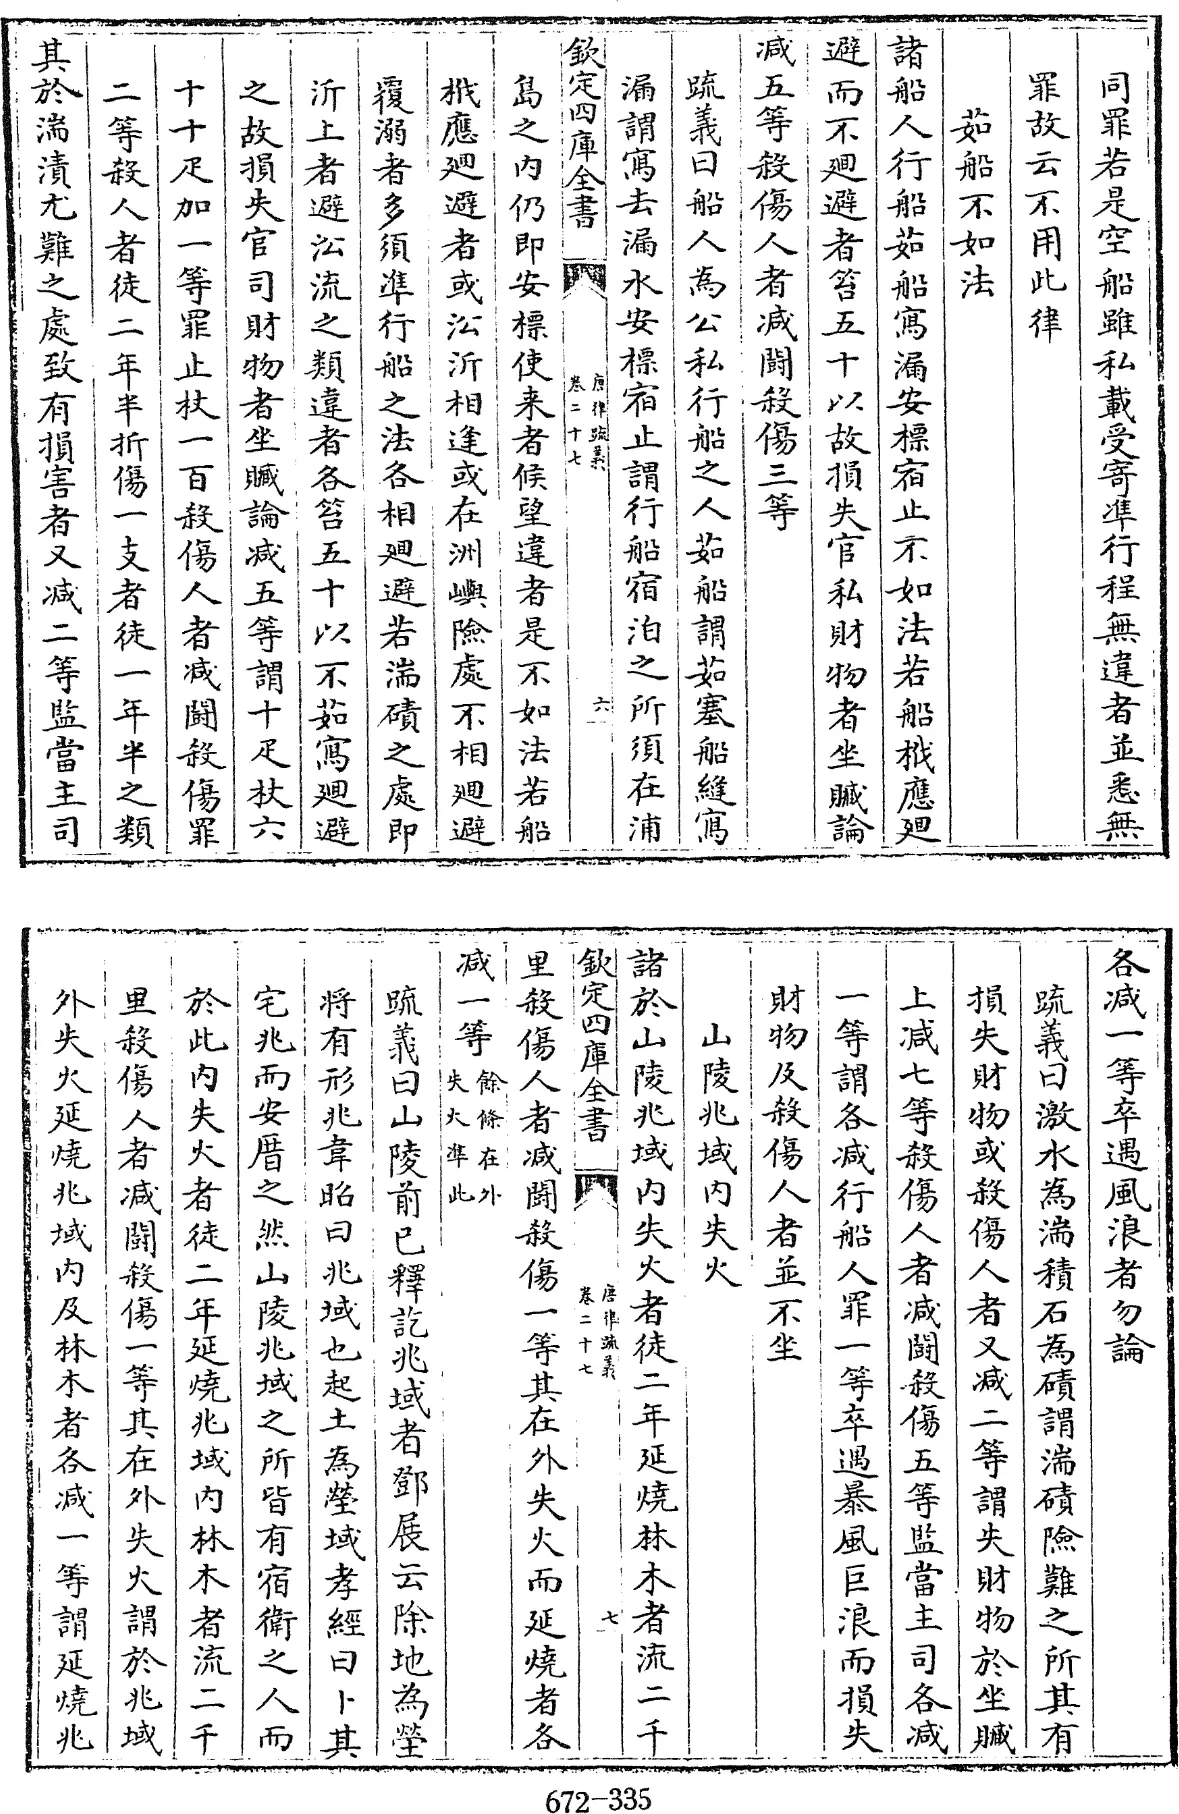 同罪若是空船雖私載受寄凖行程無違者並悉無
罪故云不用此律
茹船不如法
諸船人行船茹船寫漏安標宿止不如法若船栰應廻
避而不廻避者笞五十以故損失官私財物者坐贓論
减五等殺傷人者减鬭殺傷三等
疏義曰船人為公私行船之人茹船謂茹塞船縫寫
漏謂寫去漏水安標宿止謂行船宿泊之所須在浦
欽定四庫全書
唐律疏義
卷二十七
六
島之内仍即安標使来者候望違者是不如法若船
栰應廻避者或㳂泝相逢或在洲嶼險處不相廻避
覆溺者多須準行船之法各相廻避若湍磧之處即
泝上者避㳂流之類違者各笞五十以不茹寫廻避
之故損失官司財物者坐贓論减五等謂十疋杖六
十十疋加一等罪止杖一百殺傷人者减鬭殺傷罪
二等殺人者徒二年半折傷一支者徒一年半之類
其於湍漬尤難之處致有損害者又减二等監當主司
各减一等卒遇風浪者勿論
疏義曰激水為湍積石為磧謂湍磧險難之所其有
損失財物或殺傷人者又减二等謂失財物於坐贓
上减七等殺傷人者减鬭殺傷五等監當主司各减
一等謂各减行船人罪一等卒遇暴風巨浪而損失
財物及殺傷人者並不坐
山陵兆域内失火
諸於山陵兆域内失火者徒二年延燒林木者流二千
欽定四庫全書
唐律疏義
卷二十七
七
里殺傷人者减鬭殺傷一等其在外失火而延燒者各
减一等
餘條在外
失火準此
疏義曰山陵前已釋訖兆域者鄧展云除地為塋
將有形兆韋昭曰兆域也起土為塋域孝經曰卜其
宅兆而安厝之然山陵兆域之所皆有宿衛之人而
於此内失火者徒二年延燒兆域内林木者流二千
里殺傷人者减鬭殺傷一等其在外失火謂於兆域
外失火延燒兆域内及林木者各减一等謂延燒兆
672-335